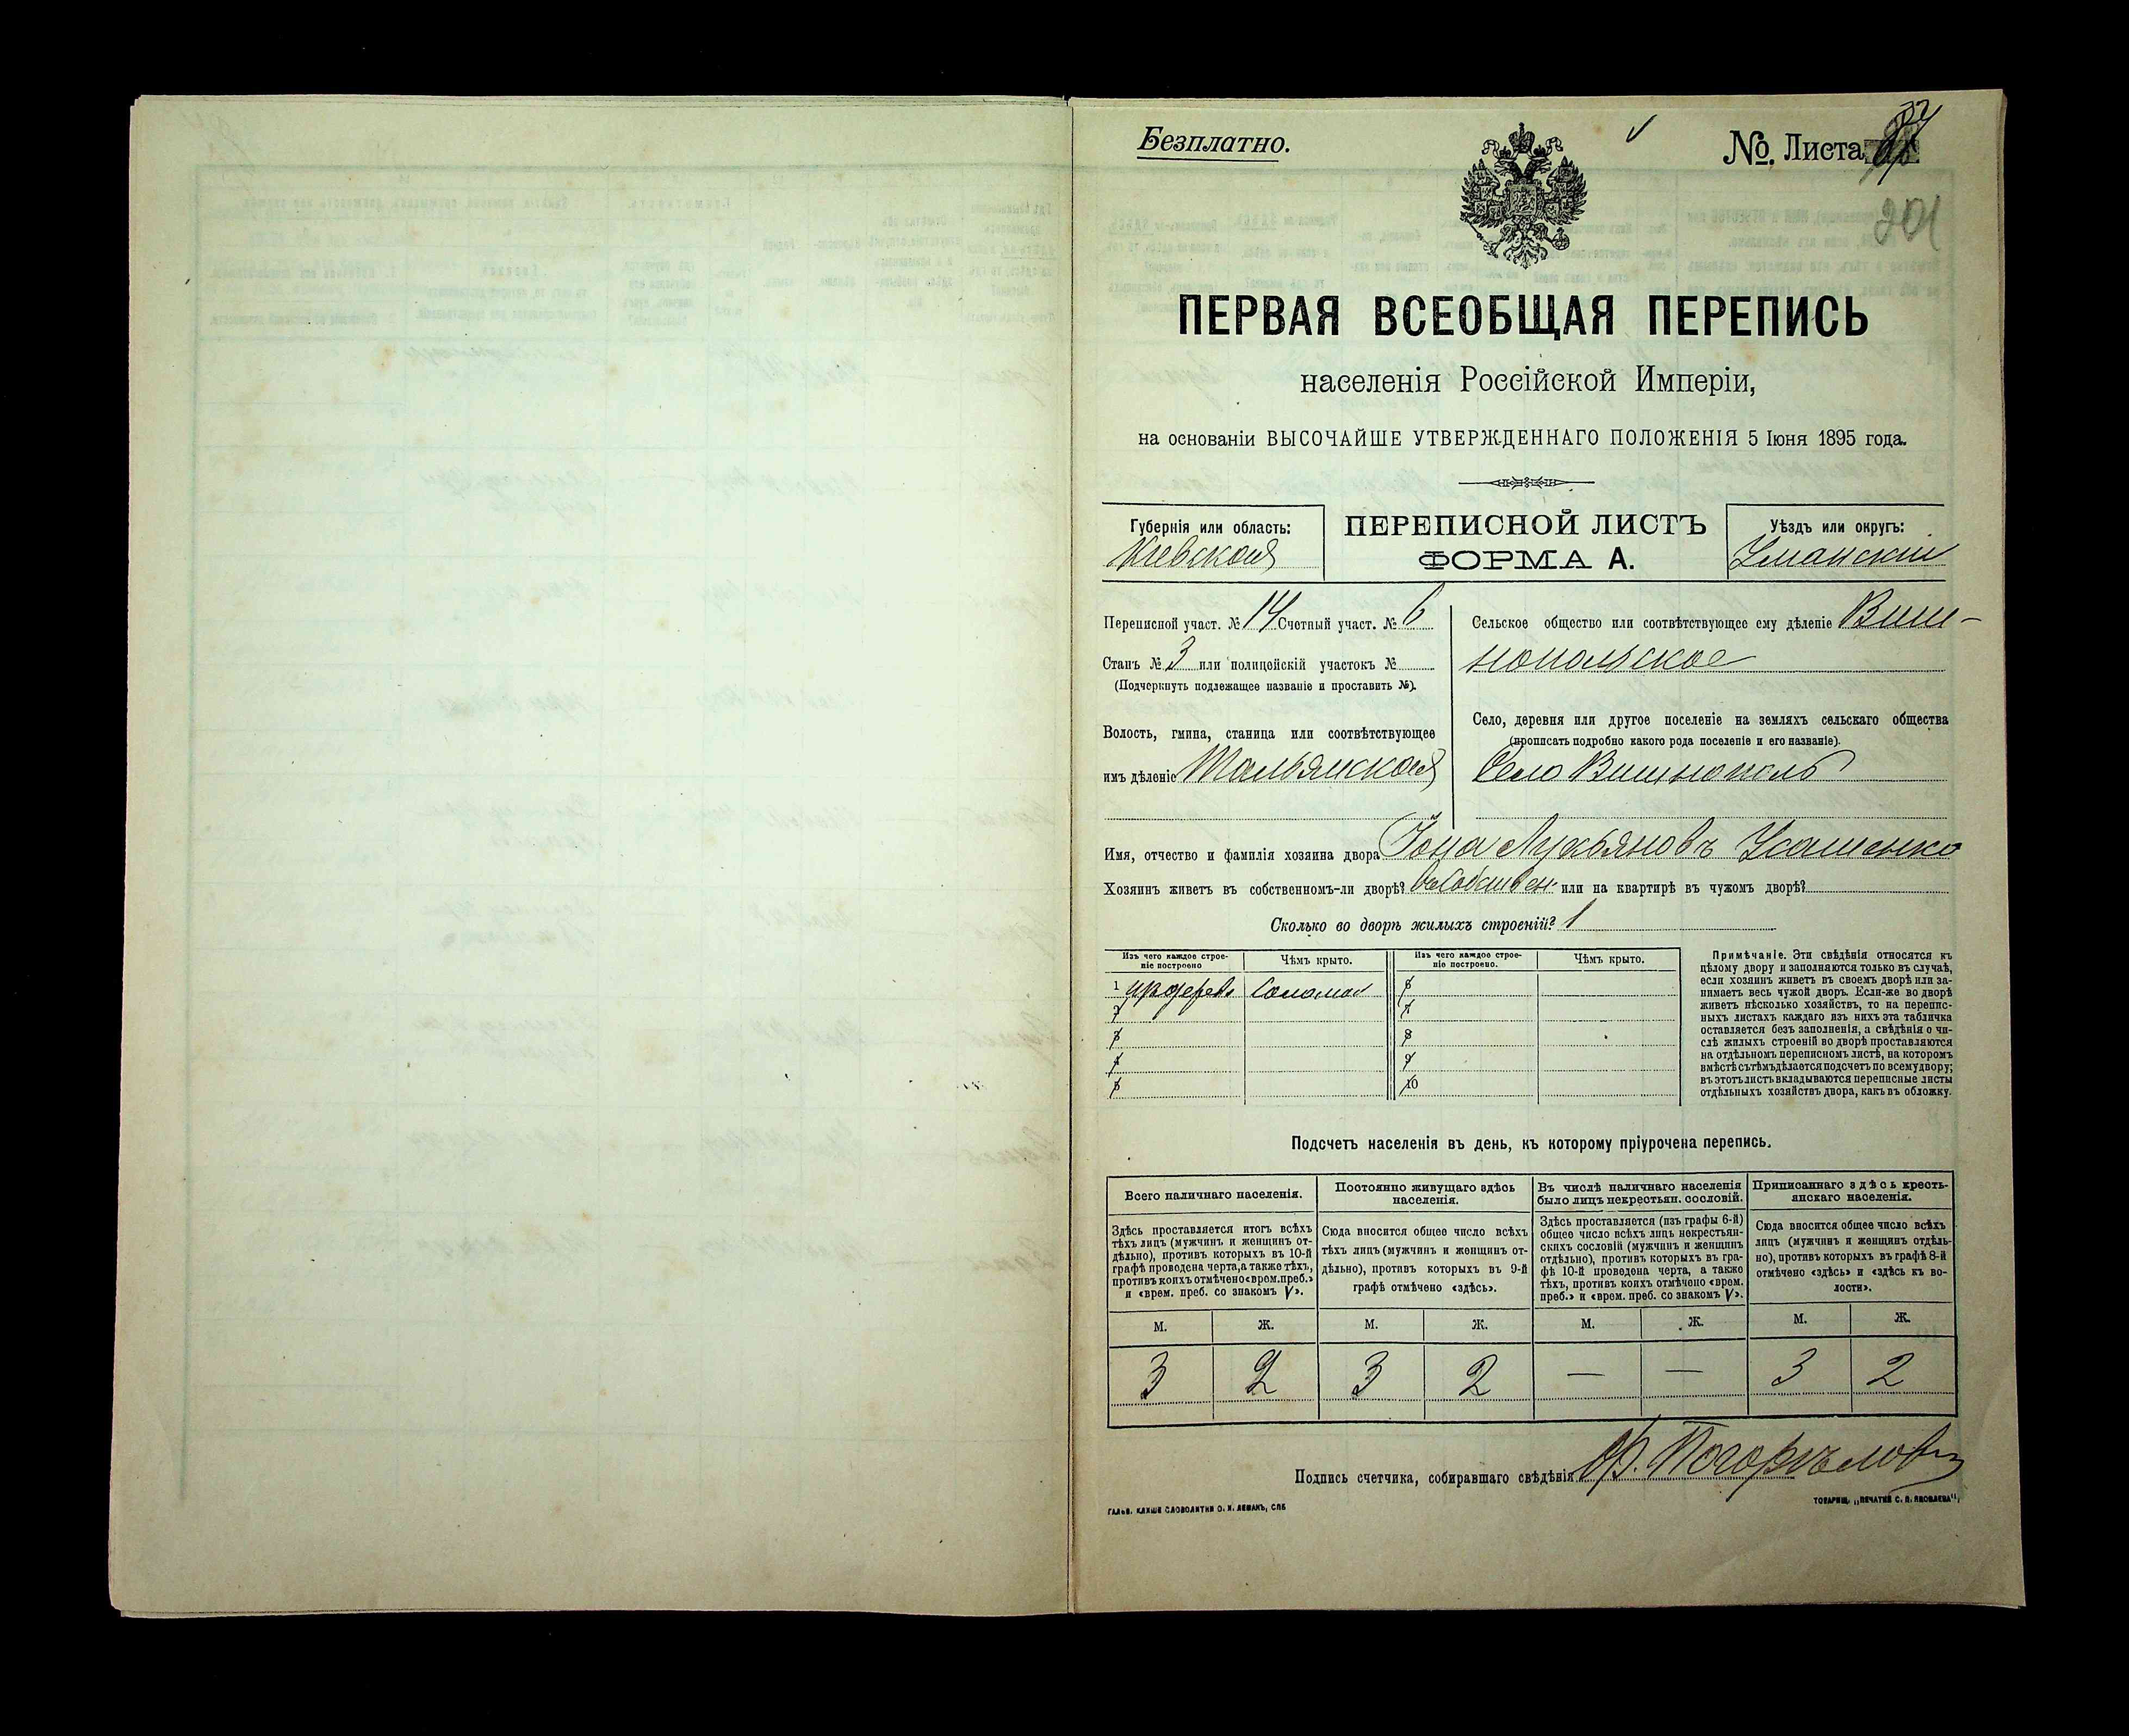 Безплатно.
№. Листа
201
ПЕРВАЯ ВСЕОБЩАЯ ПЕРЕПИСЬ
населенія Россійской Имперіи,
на основаніи ВЫСОЧАЙШЕ УТВЕРЖДЕННАГО ПОЛОЖЕНІЯ 5 Іюня 1895 года.
Губернія или область:
Кіевская
ПЕРЕПИСНОЙ ЛИСТЪ
ФОРМА А.
Уѣздъ или округъ:
Уманскій
Переписной участ. № 14 Счетный участ. № 6
Станъ № 3 или полицейскій участокъ №
(Подчеркнуть подлежащее названіе и проставить №).
Волость, гмина, станица или соотвѣтствующее
имъ дѣленіе Тальянская
Сельское общество или соотвѣтствующее ему дѣленіе Виш-
нопольское
Село, деревня или другое поселеніе на земляхъ сельскаго общества
(прописать подробно какого рода поселеніе и его названіе).
Село Вишнополь
Имя, отчество и фамилія хозяина двора Іона Лукьяновъ Усатенко
Хозяинъ живетъ въ собственномъ-ли дворѣ? въ собствен. или на квартирѣ въ чужомъ дворѣ?
Сколько во дворѣ жилыхъ строеній? 1
Изъ чего каждое строе-
ніе построено
Чѣмъ крыто.
Изъ чего каждое строе-
ніе построено.
Чѣмъ крыто.
1 изъ дерева Соломой
2
3
4
5
6
7
8
9
10
Примѣчаніе. Эти свѣдѣнія относятся къ
цѣлому двору и заполняются только въ случаѣ,
если хозяинъ живетъ въ своемъ дворѣ или за-
нимаетъ весь чужой дворъ. Если-же во дворѣ
живетъ нѣсколько хозяйствъ, то на перепис-
ныхъ листахъ каждаго изъ нихъ эта табличка
оставляется безъ заполненія, а свѣдѣнія о чи-
слѣ жилыхъ строеній во дворѣ проставляются
на отдѣльномъ переписномъ листѣ, на которомъ
вмѣстѣ съ тѣмъ дѣлается подсчетъ по всему двору;
въ этотъ листъ вкладываются переписные листы
отдѣльныхъ хозяйствъ двора, какъ въ обложку.
Подсчетъ населенія въ день, къ которому пріурочена перепись.
Всего наличнаго населенія.
Постоянно живущаго здѣсь
населенія.
Въ числѣ наличнаго населенія
было лицъ некрестьян. сословій.
Приписаннаго здѣсь кресть-
янскаго населенія.
Здѣсь проставляется итогъ всѣхъ
тѣхъ лицъ (мужчинъ и женщинъ от-
дѣльно), противъ которыхъ въ 10-й
графѣ проведена черта, а также тѣхъ,
противъ коихъ отмѣчено «врем. преб.»
и «врем. преб. со знакомъ V».
Сюда вносится общее число всѣхъ
тѣхъ лицъ (мужчинъ и женщинъ от-
дѣльно), противъ которыхъ въ 9-й
графѣ отмѣчено «здѣсь».
Здѣсь проставляется (изъ графы 6-й)
общее число всѣхъ лицъ некрестьян-
скихъ сословій (мужчинъ и женщинъ
отдѣльно), противъ которыхъ въ гра-
фѣ 10-й проведена черта, а также
тѣхъ, противъ коихъ отмѣчено «врем.
преб.» и «врем. преб. со знакомъ V».
Сюда вносится общее число всѣхъ
лицъ (мужчинъ и женщинъ отдѣль-
но), противъ которыхъ въ графѣ 8-й
отмѣчено «здѣсь» и «здѣсь къ во-
лости».
М. Ж. М. Ж. М. Ж. М. Ж.
3 2 3 2 — — 3 2
Подпись счетчика, собиравшаго свѣдѣнія Ф. Погорѣловъ
ГАЛЬВ. КЛИШЕ СЛОВОЛИТНИ О. И. ЛЕМАНЪ, СПБ
ТОВАРИЩ. „ПЕЧАТНЯ С. П. ЯКОВЛЕВА“.